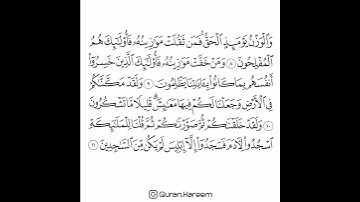 وَٱلْوَزْنُ يَوْمَئِذٍ ٱلْحَقُّ فَمَن ثَقُلَتْ مَوَٰزِينُهُۥ فَأُو۟لَٰٓئِكَ هُمُ
ٱلْمُفْلِحُونَ ٨ وَمَنْ خَفَّتْ مَوَٰزِينُهُۥ فَأُو۟لَٰٓئِكَ ٱلَّذِينَ خَسِرُوٓا۟
أَنفُسَهُم بِمَا كَانُوا۟ بِـَٔايَٰتِنَا يَظْلِمُونَ ٩ وَلَقَدْ مَكَّنَّٰكُمْ
فِى ٱلْأَرْضِ وَجَعَلْنَا لَكُمْ فِيهَا مَعَٰيِشَ قَلِيلًا مَّا تَشْكُرُونَ
١٠ وَلَقَدْ خَلَقْنَٰكُمْ ثُمَّ صَوَّرْنَٰكُمْ ثُمَّ قُلْنَا لِلْمَلَٰٓئِكَةِ
ٱسْجُدُوا۟ لِـَٔادَمَ فَسَجَدُوٓا۟ إِلَّآ إِبْلِيسَ لَمْ يَكُن مِّنَ ٱلسَّٰجِدِينَ ١١
Quran.Kareem